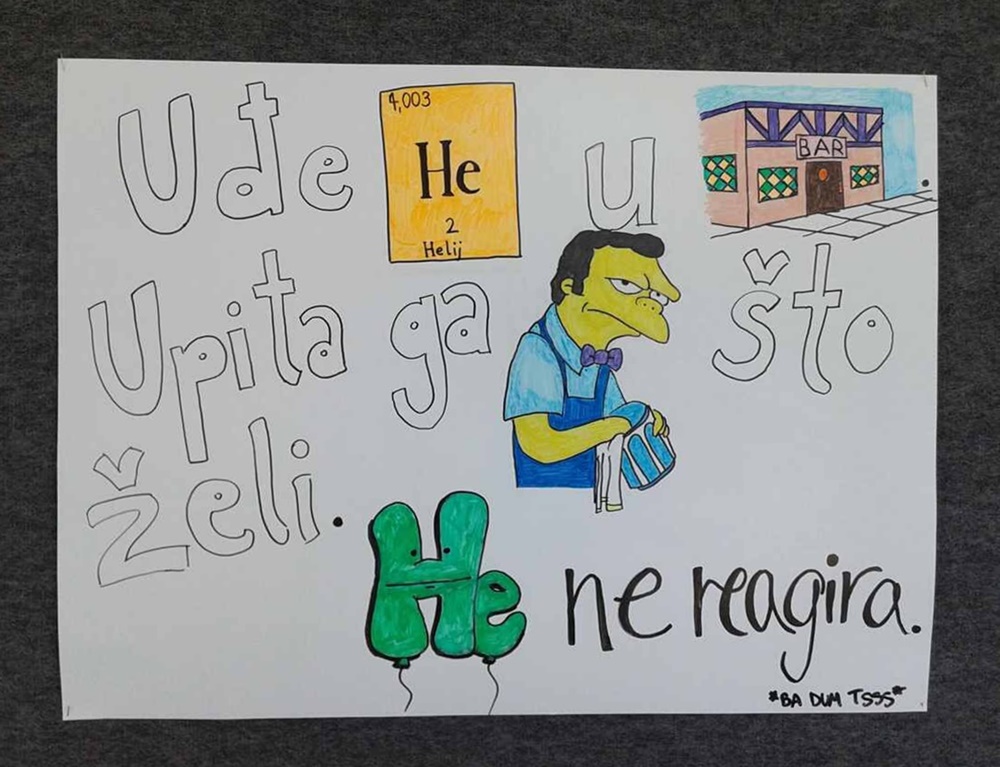 Uđe
4,003
He
2
Helij
u
BAR
.
Upita ga što
želi.
He ne reagira.
*BA DUM TSSS*